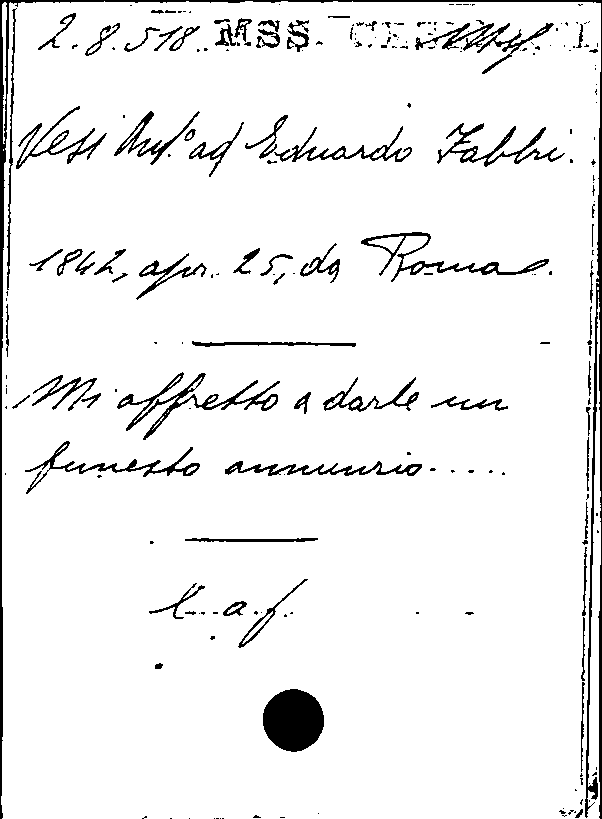 2.8.518. MSS.
Vesi Ant.º ad Eduardo Fabbri.
1842, apr. 25, da Roma.
Mi affretto a darle un
funesto annunzio.....
l. a. f.